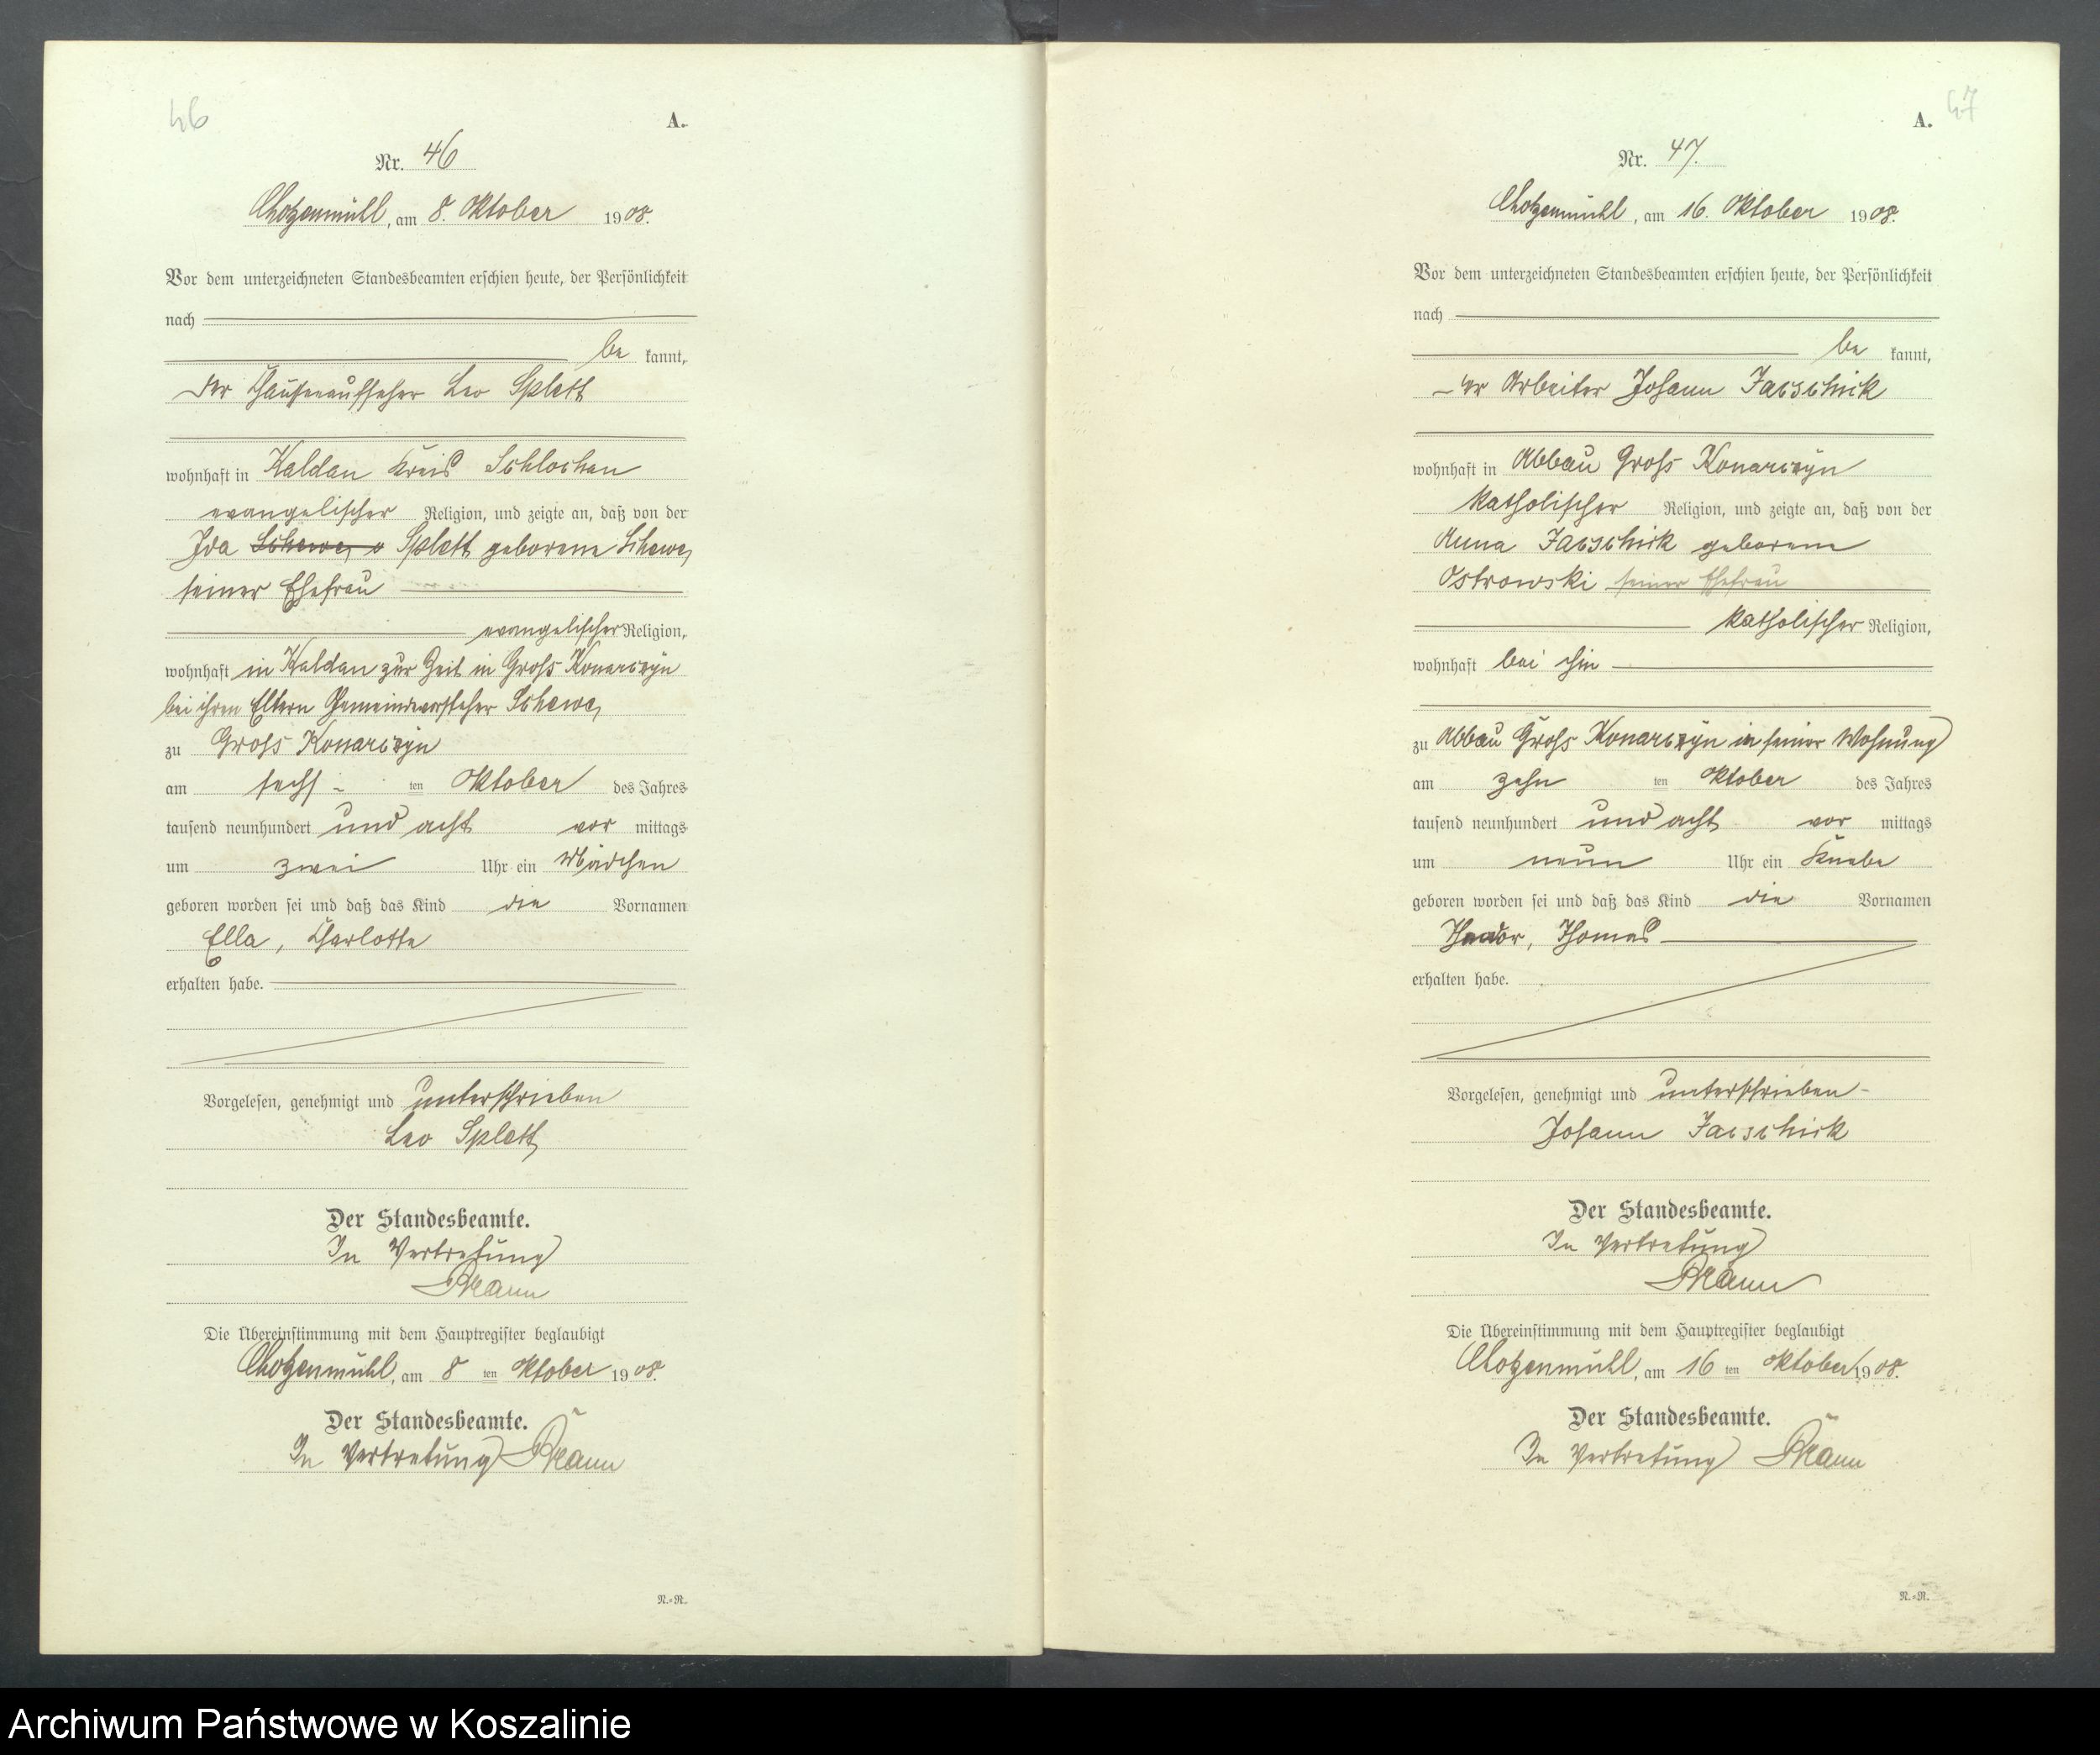 46
A.
Nr. 46
Chotzenmühl, am 8. Oktober 1908.
Vor dem unterzeichneten Standesbeamten erschien heute, der Persönlichkeit
nach
be kannt,
der Chausseeaufseher Leo Splett
wohnhaft in Kaldau Kreis Schlochau
evangelischer Religion, und zeigte an, daß von der
Ida Schewe, Splett geborene Schewe,
seiner Ehefrau
evangelischer Religion,
wohnhaft in Kaldau zur Zeit in Groß Konarczyn
bei ihren Eltern Gemeindevorsteher Schewe,
zu Groß Konarczyn
am sechs ten Oktober des Jahres
tausend neunhundert und acht vor mittags
um zwei Uhr ein Mädchen
geboren worden sei und daß das Kind die Vornamen
Ella, Charlotte
erhalten habe.
Vorgelesen, genehmigt und unterschrieben
Leo Splett
Der Standesbeamte.
In Vertretung
Die Übereinstimmung mit dem Hauptregister beglaubigt
Chotzenmühl, am 8 ten Oktober 1908.
Der Standesbeamte.
In Vertretung
N.-R.
47
A.
Nr. 47.
Chotzenmühl, am 16. Oktober 1908.
Vor dem unterzeichneten Standesbeamten erschien heute, der Persönlichkeit
nach
be kannt,
der Arbeiter Johann Jacschick
wohnhaft in Abbau Groß Konarczyn
katholischer Religion, und zeigte an, daß von der
Anna Jacschick geborene
Ostrowski seiner Ehefrau
katholischer Religion,
wohnhaft bei ihm
zu Abbau Groß Konarczyn in seiner Wohnung
am zehn ten Oktober des Jahres
tausend neunhundert und acht vor mittags
um neun Uhr ein Knabe
geboren worden sei und daß das Kind die Vornamen
Theodor, Thomas
erhalten habe.
Vorgelesen, genehmigt und unterschrieben
Johann Jacschick
Der Standesbeamte.
In Vertretung
Die Übereinstimmung mit dem Hauptregister beglaubigt
Chotzenmühl, am 16 ten Oktober 1908.
Der Standesbeamte.
In Vertretung
N.-R.
Archiwum Państwowe w Koszalinie